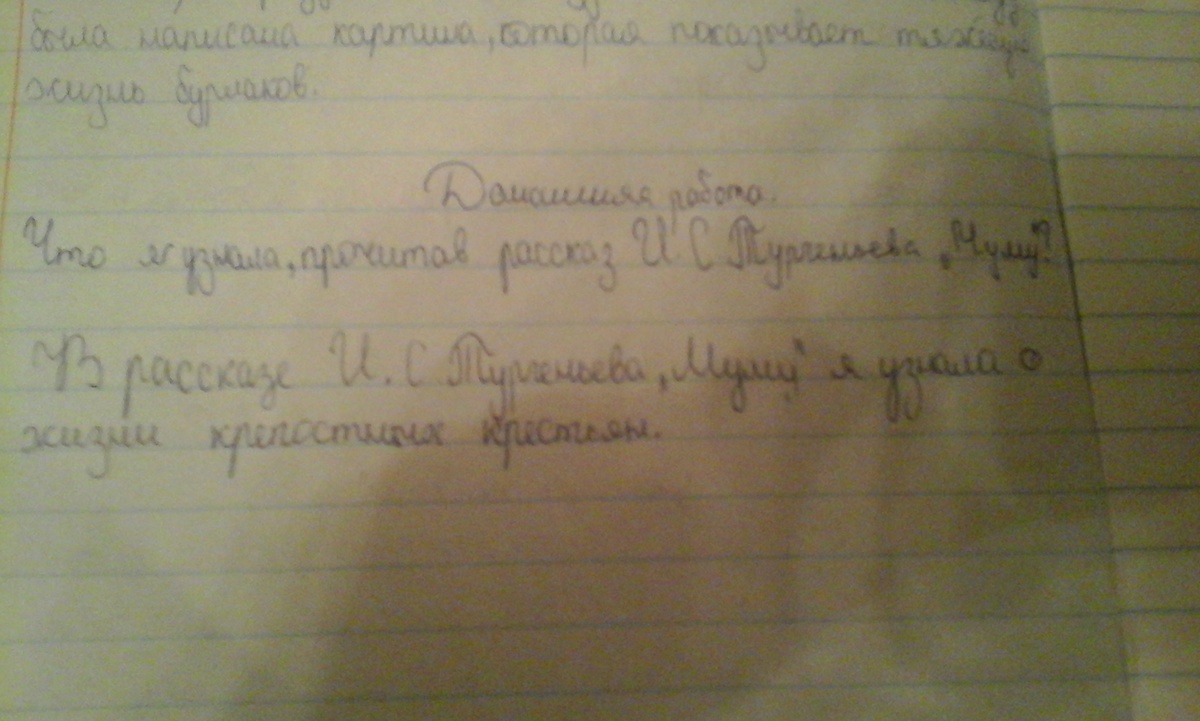 была написана картина, которая показывает тяжёлую
жизнь бурлаков.
Домашняя работа.
Что я узнала, прочитав рассказ И. С. Тургеньева „Муму"?
В рассказе И. С. Тургеньева „Муму" я узнала о
жизни крепостных крестьян.